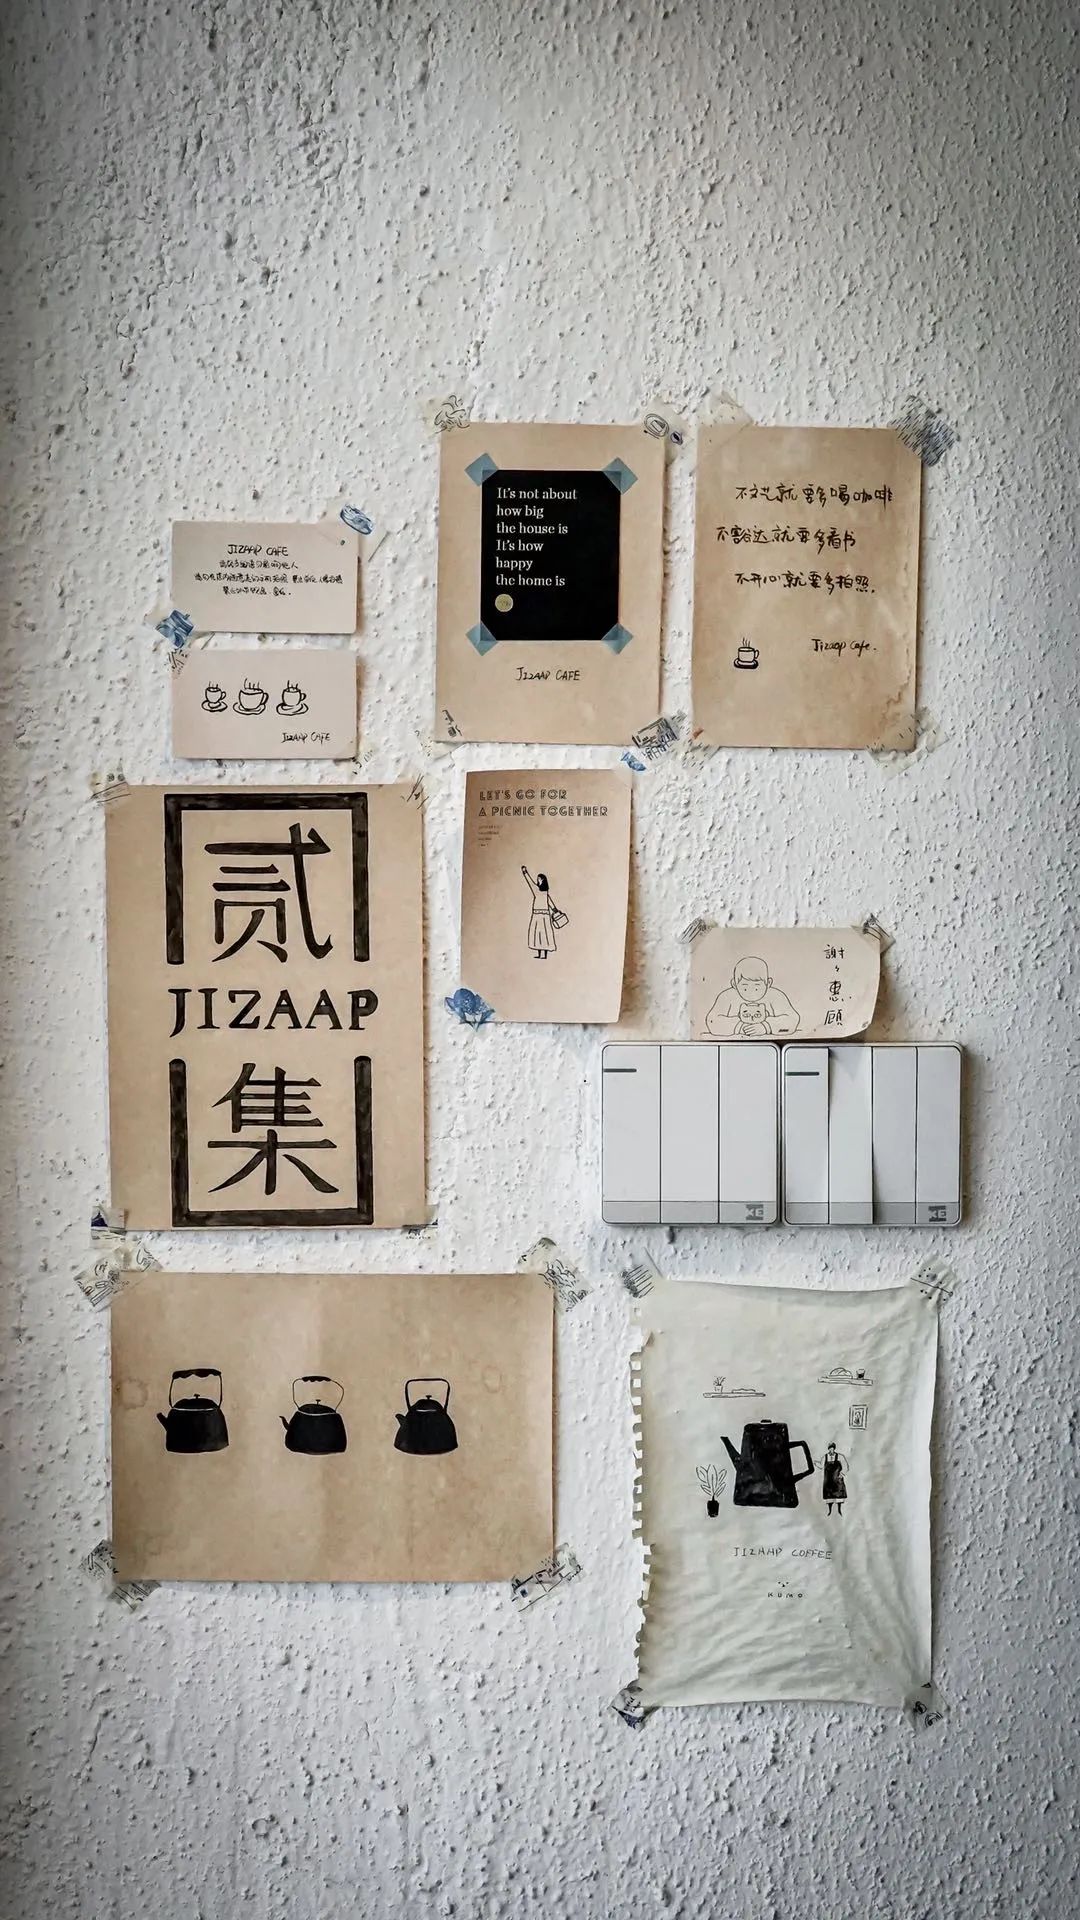 JIZAAP CAFE
JIZAAP CAFE
It's not about
how big
the house is
It's how
happy
the home is
JIZAAP CAFE
不文艺就要多喝咖啡
不豁达就要多看书
不开心就要多拍照.
Jizaap Cafe.
贰
JIZAAP
集
LET'S GO FOR
A PICNIC TOGETHER
謝々惠顧
JIZAAP COFFEE
KUMO